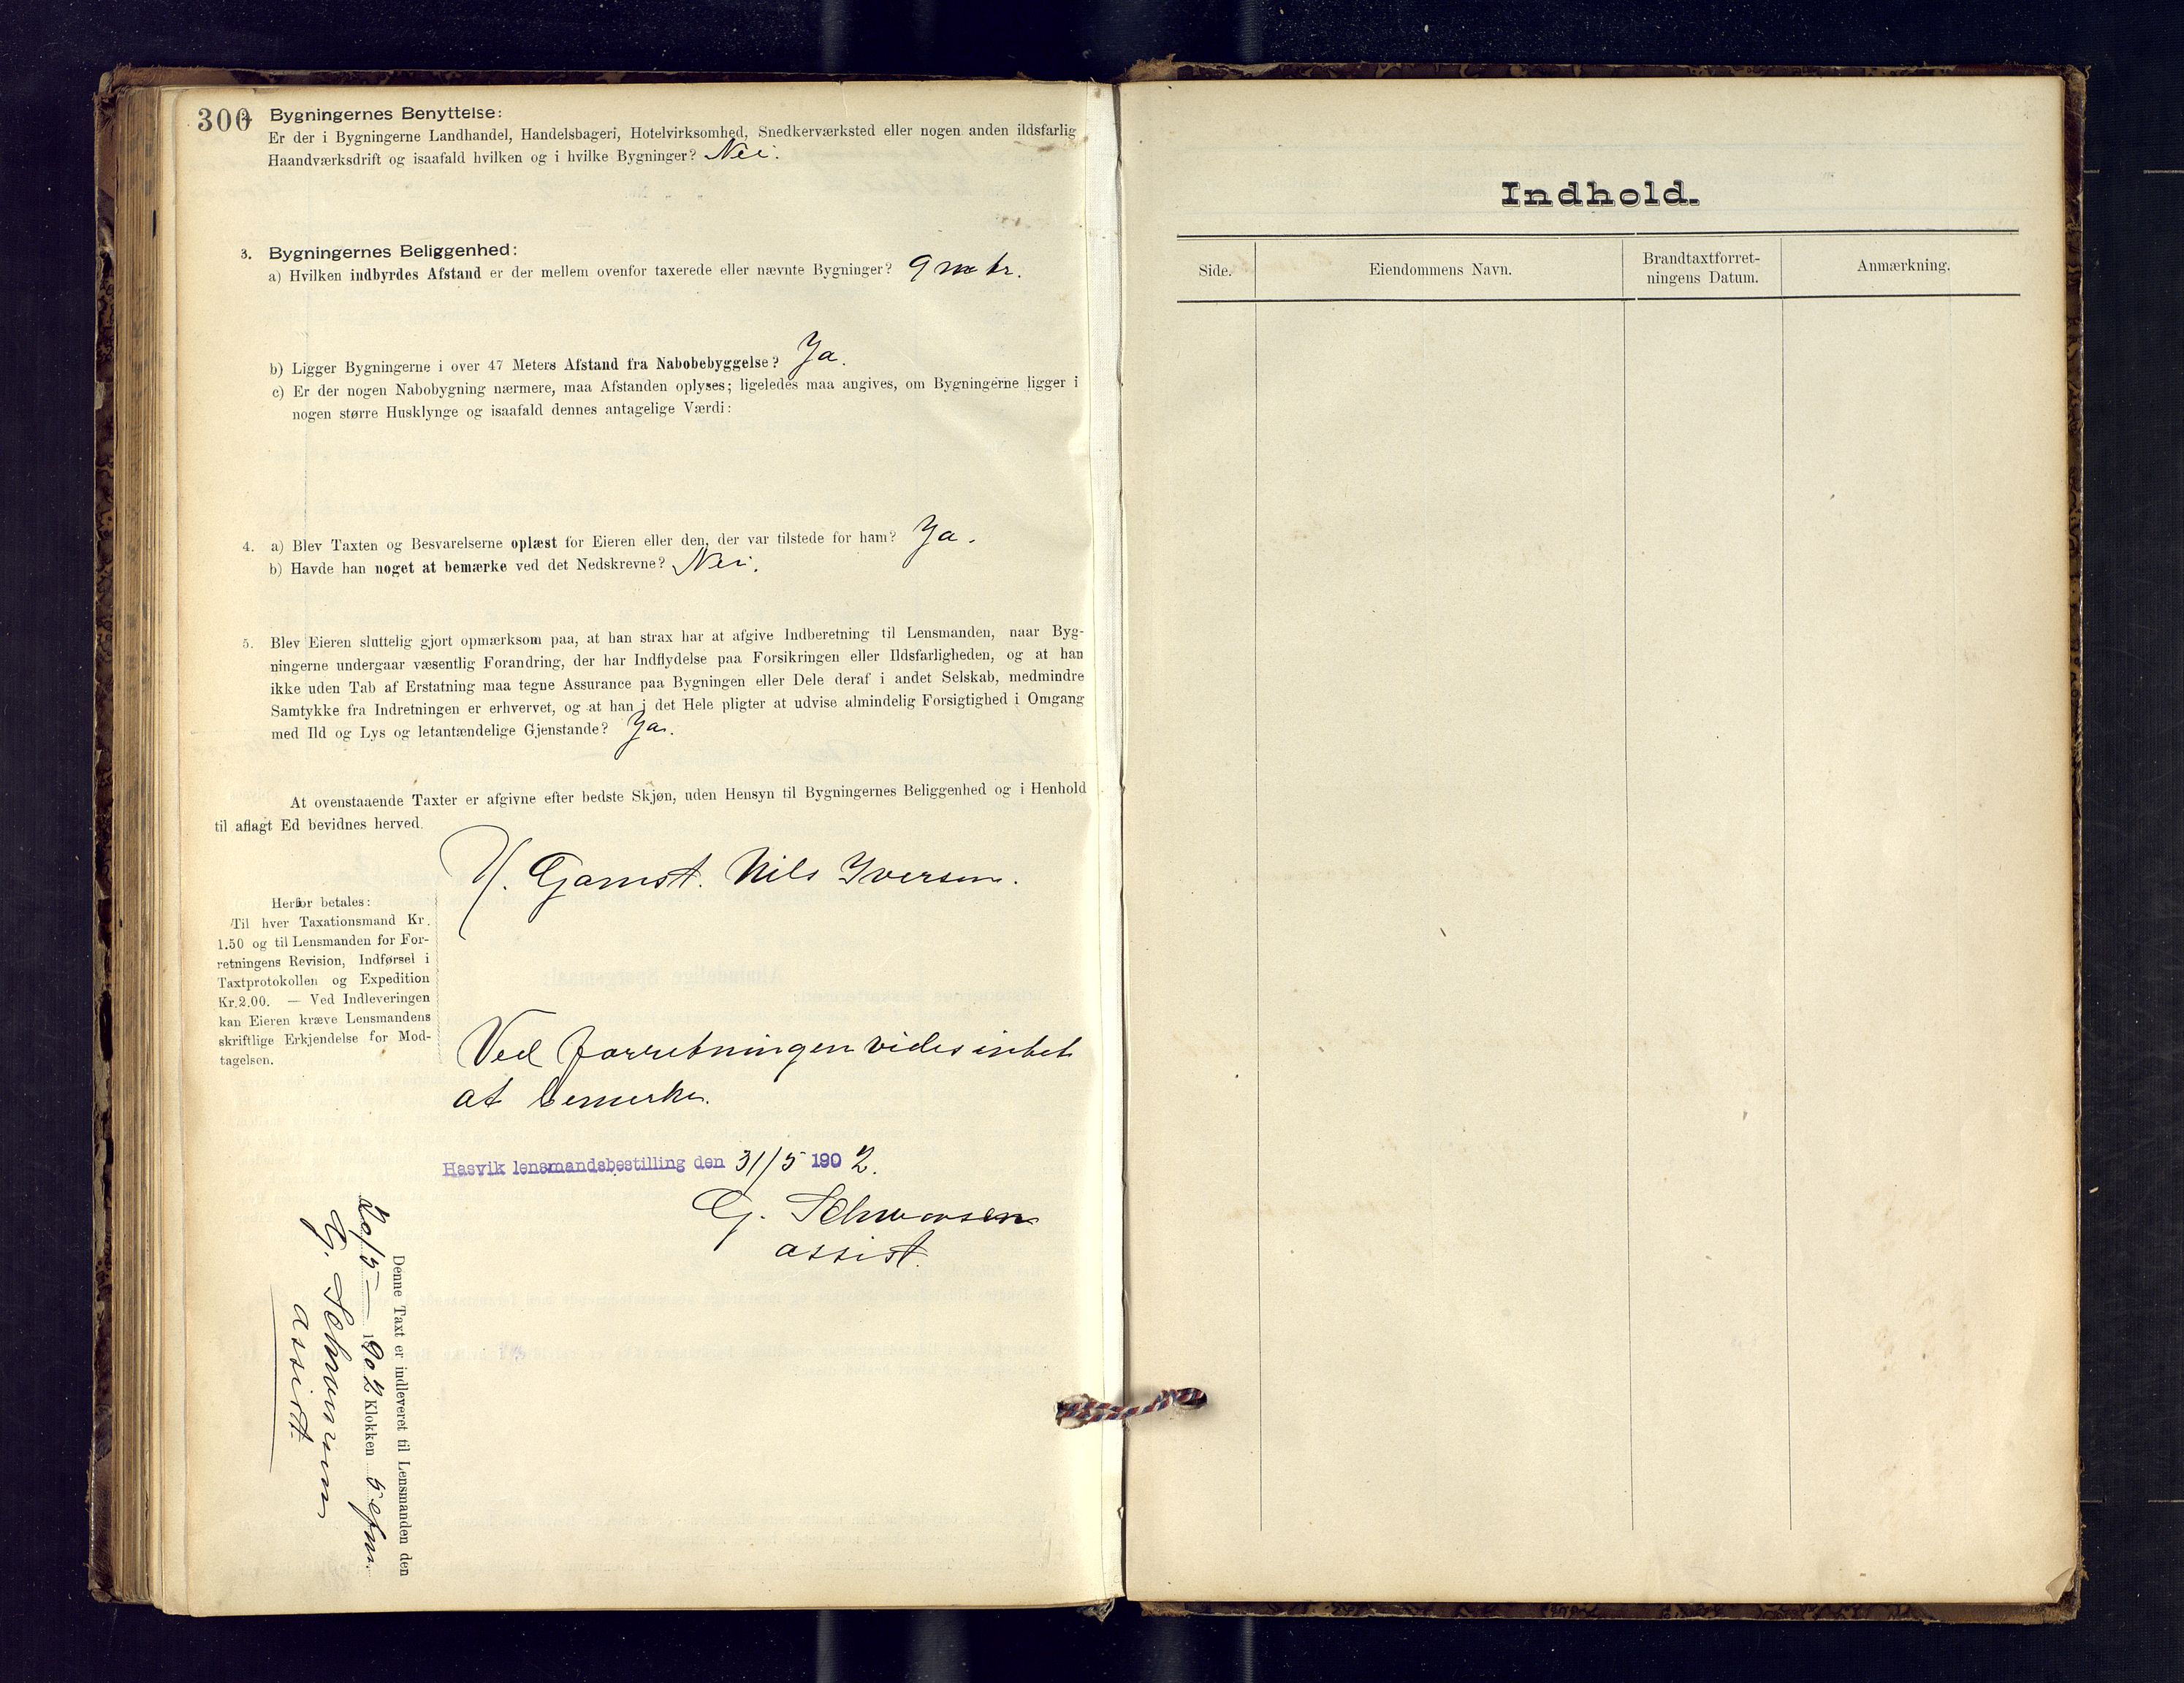 300
2. Bygningernes Benyttelse:
Er der i Bygningerne Landhandel, Handelsbageri, Hotelvirksomhed, Snedkerværksted eller nogen anden ildsfarlig
Haandværksdrift og isaafald hvilken og i hvilke Bygninger? Nei.
3. Bygningernes Beliggenhed:
a) Hvilken indbyrdes Afstand er der mellem ovenfor taxerede eller nævnte Bygninger? 9 mtr.
b) Ligger Bygningerne i over 47 Meters Afstand fra Nabobebyggelse? Ja.
c) Er der nogen Nabobygning nærmere, maa Afstanden oplyses; ligeledes maa angives, om Bygningerne ligger i
nogen større Husklynge og isaafald dennes antagelige Værdi:
4. a) Blev Taxten og Besvarelserne oplæst for Eieren eller den, der var tilstede for ham? Ja.
b) Havde han noget at bemærke ved det Nedskrevne? Nei.
5. Blev Eieren sluttelig gjort opmærksom paa, at han strax har at afgive Indberetning til Lensmanden, naar Byg-
ningerne undergaar væsentlig Forandring, der har Indflydelse paa Forsikringen eller Ildsfarligheden, og at han
ikke uden Tab af Erstatning maa tegne Assurance paa Bygningen eller Dele deraf i andet Selskab, medmindre
Samtykke fra Indretningen er erhvervet, og at han i det Hele pligter at udvise almindelig Forsigtighed i Omgang
med Ild og Lys og letantændelige Gjenstande? Ja.
At ovenstaaende Taxter er afgivne efter bedste Skjøn, uden Hensyn til Bygningernes Beliggenhed og i Henhold
til aflagt Ed bevidnes herved.
H. Gamst. Nils Iversen.
Herfor betales:
Til hver Taxationsmand Kr.
1.50 og til Lensmanden for For-
retningens Revision, Indførsel i
Taxtprotokollen og Expedition
Kr. 2.00. — Ved Indleveringen
kan Eieren kræve Lensmandens
skriftlige Erkjendelse for Mod-
tagelsen.
Ved forretningen vides intet
at bemerke.
Hasvik lensmandsbestilling den 31/5 1902.
G.
assist.
Denne Taxt er indleveret til Lensmanden den
20/5 1902 Klokken 5 efm.
G.
assist.
Indhold.
Side.
Eiendommens Navn.
Brandtaxtforret-
ningens Datum.
Anmærkning.